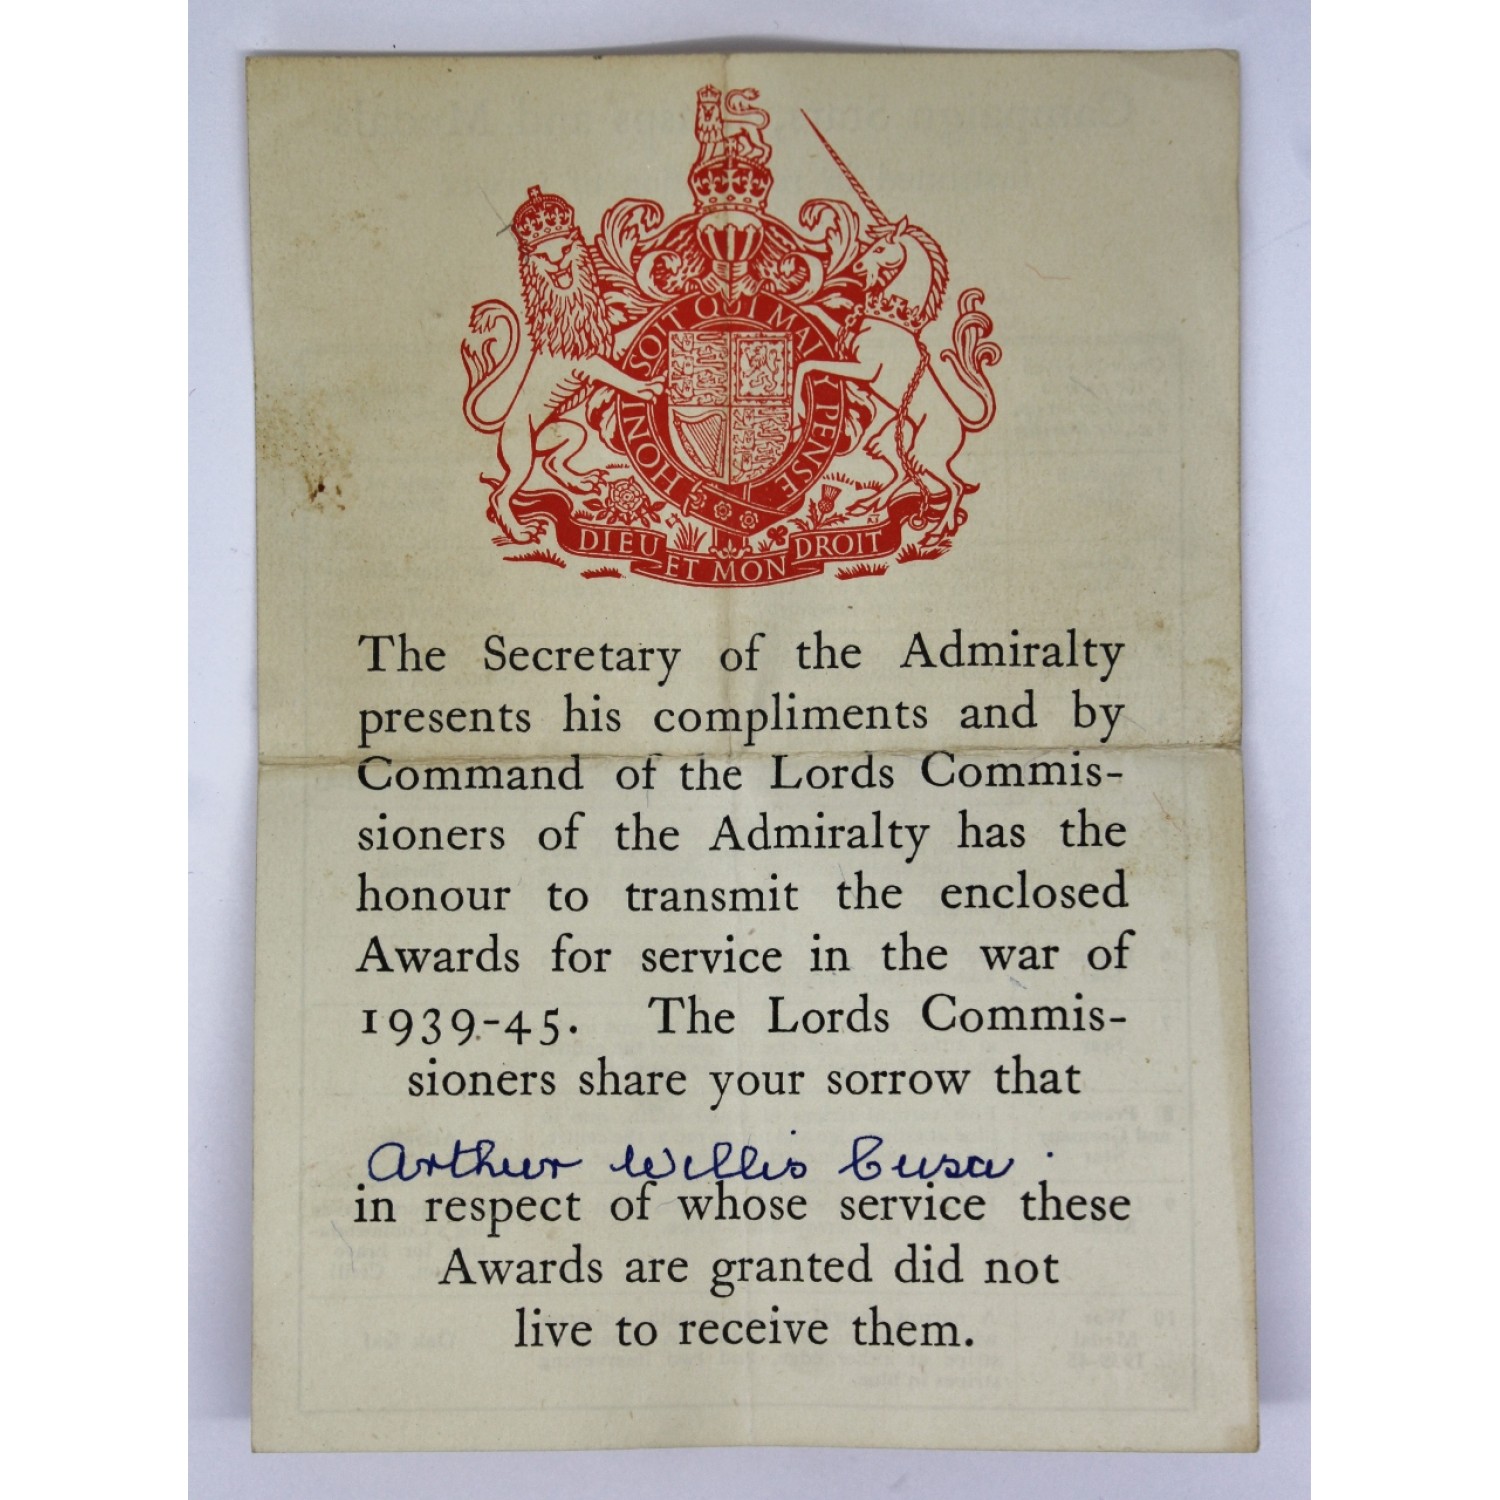 HONI SOIT QUI MAL Y PENSE
DIEU ET MON DROIT
The Secretary of the Admiralty
presents his compliments and by
Command of the Lords Commis-
sioners of the Admiralty has the
honour to transmit the enclosed
Awards for service in the war of
1939-45. The Lords Commis-
sioners share your sorrow that
Arthur Willis Cusa
in respect of whose service these
Awards are granted did not
live to receive them.